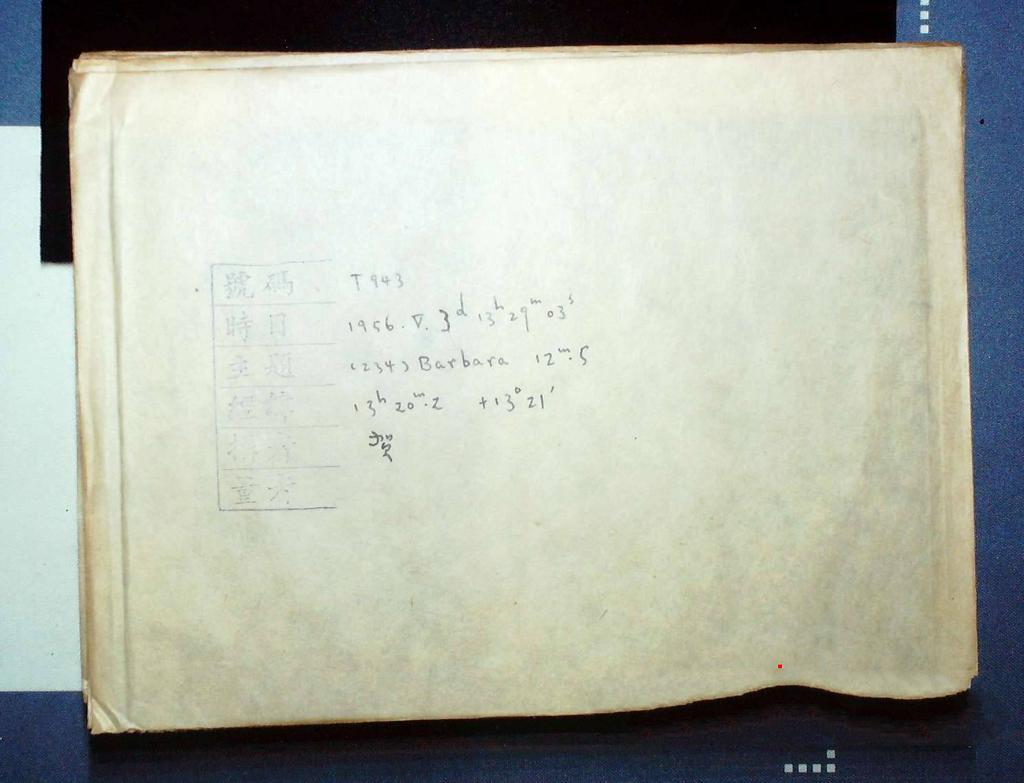 號碼 T943
時日 1956. V. 3ᵈ 13ʰ 29ᵐ 03ˢ
主題 (234) Barbara 12ᵐ.5
經緯 13ʰ 20ᵐ.2 +13° 21'
賀